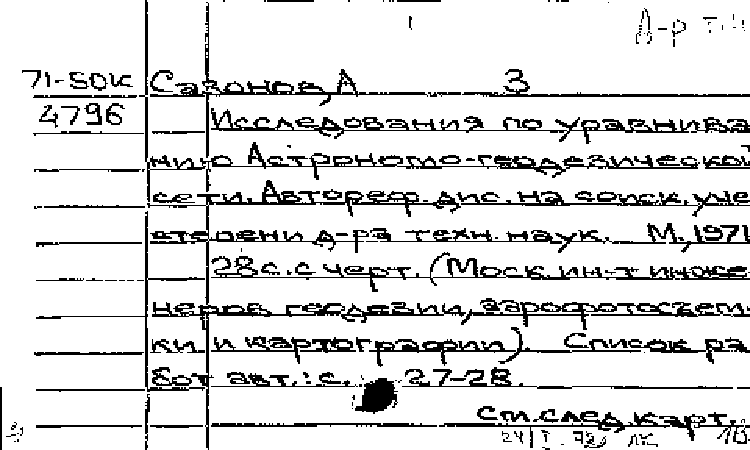 Д-р т.н
71-5DK Сазонов, А З
4796 Исследования по уравнива
нию Астрономо-геодезической
сети. Автореф. дис. на соиск. уче
степени д-ра техн. наук. М., 1971
28 с. с черт. (Моск. ин-т инже
неров геодезии, аэрофотосъем-
ки и картографии). Список ра
бот авт.: с. 27-28.
См. след. карт.
24/I.72